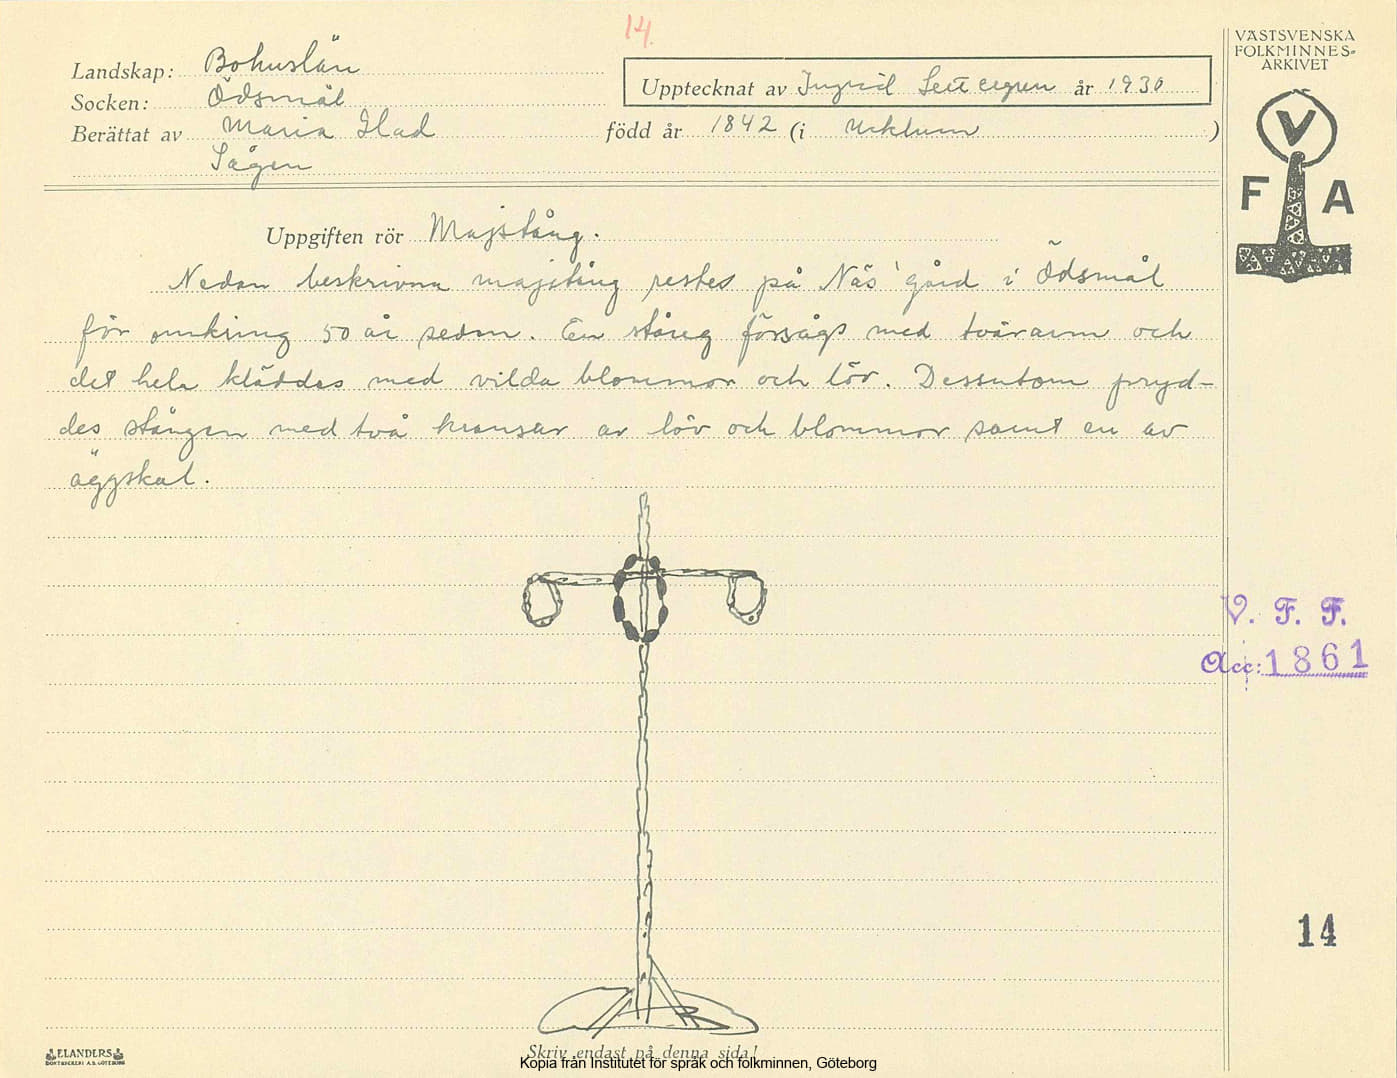 14.
VÄSTSVENSKA
FOLKMINNES-
ARKIVET
Landskap: Bohuslän
Socken: Ödsmål
Upptecknat av Ingrid år 1930
Berättat av Maria född år 1842 (i Ucklum)
Sågen
V
F A
Uppgiften rör Majstång.
Nedan beskrivna majstång restes på Näs' gård i Ödsmål
för omkring 50 år sedan. En stång försågs med tvärarm och
det hela kläddes med vilda blommor och löv. Dessutom pryd-
des stången med två kransar av löv och blommor samt en av
äggskal.
V. F. F.
Acc: 1861
14
ELANDERS
BOKTRYCKERI A.B. GÖTEBORG
Skriv endast på denna sida!
Kopia från Institutet för språk och folkminnen, Göteborg